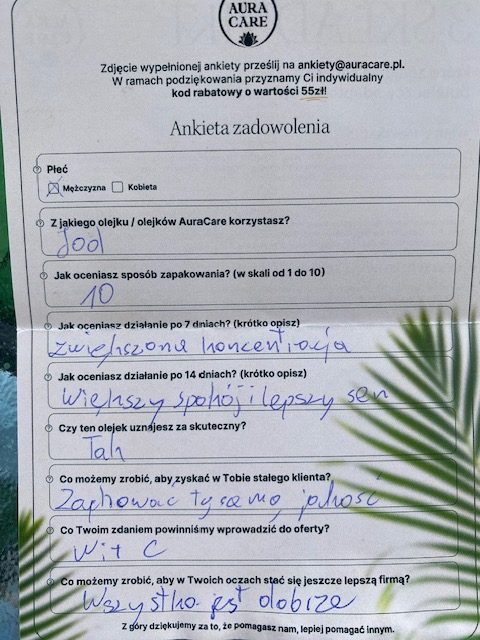 AURA
CARE
Zdjęcie wypełnionej ankiety prześlij na ankiety@auracare.pl.
W ramach podziękowania przyznamy Ci indywidualny
kod rabatowy o wartości 55zł!
Ankieta zadowolenia
Płeć
Mężczyzna Kobieta
Z jakiego olejku / olejków AuraCare korzystasz?
Jod
Jak oceniasz sposób zapakowania? (w skali od 1 do 10)
10
Jak oceniasz działanie po 7 dniach? (krótko opisz)
Zwiększona koncentracja
Jak oceniasz działanie po 14 dniach? (krótko opisz)
Większy spokój i lepszy sen
Czy ten olejek uznajesz za skuteczny?
Tak
Co możemy zrobić, aby zyskać w Tobie stałego klienta?
Zachować tą samą jakość
Co Twoim zdaniem powinniśmy wprowadzić do oferty?
Wit C
Co możemy zrobić, aby w Twoich oczach stać się jeszcze lepszą firmą?
Wszystko jest dobrze
Z góry dziękujemy za to, że pomagasz nam, lepiej pomagać innym.